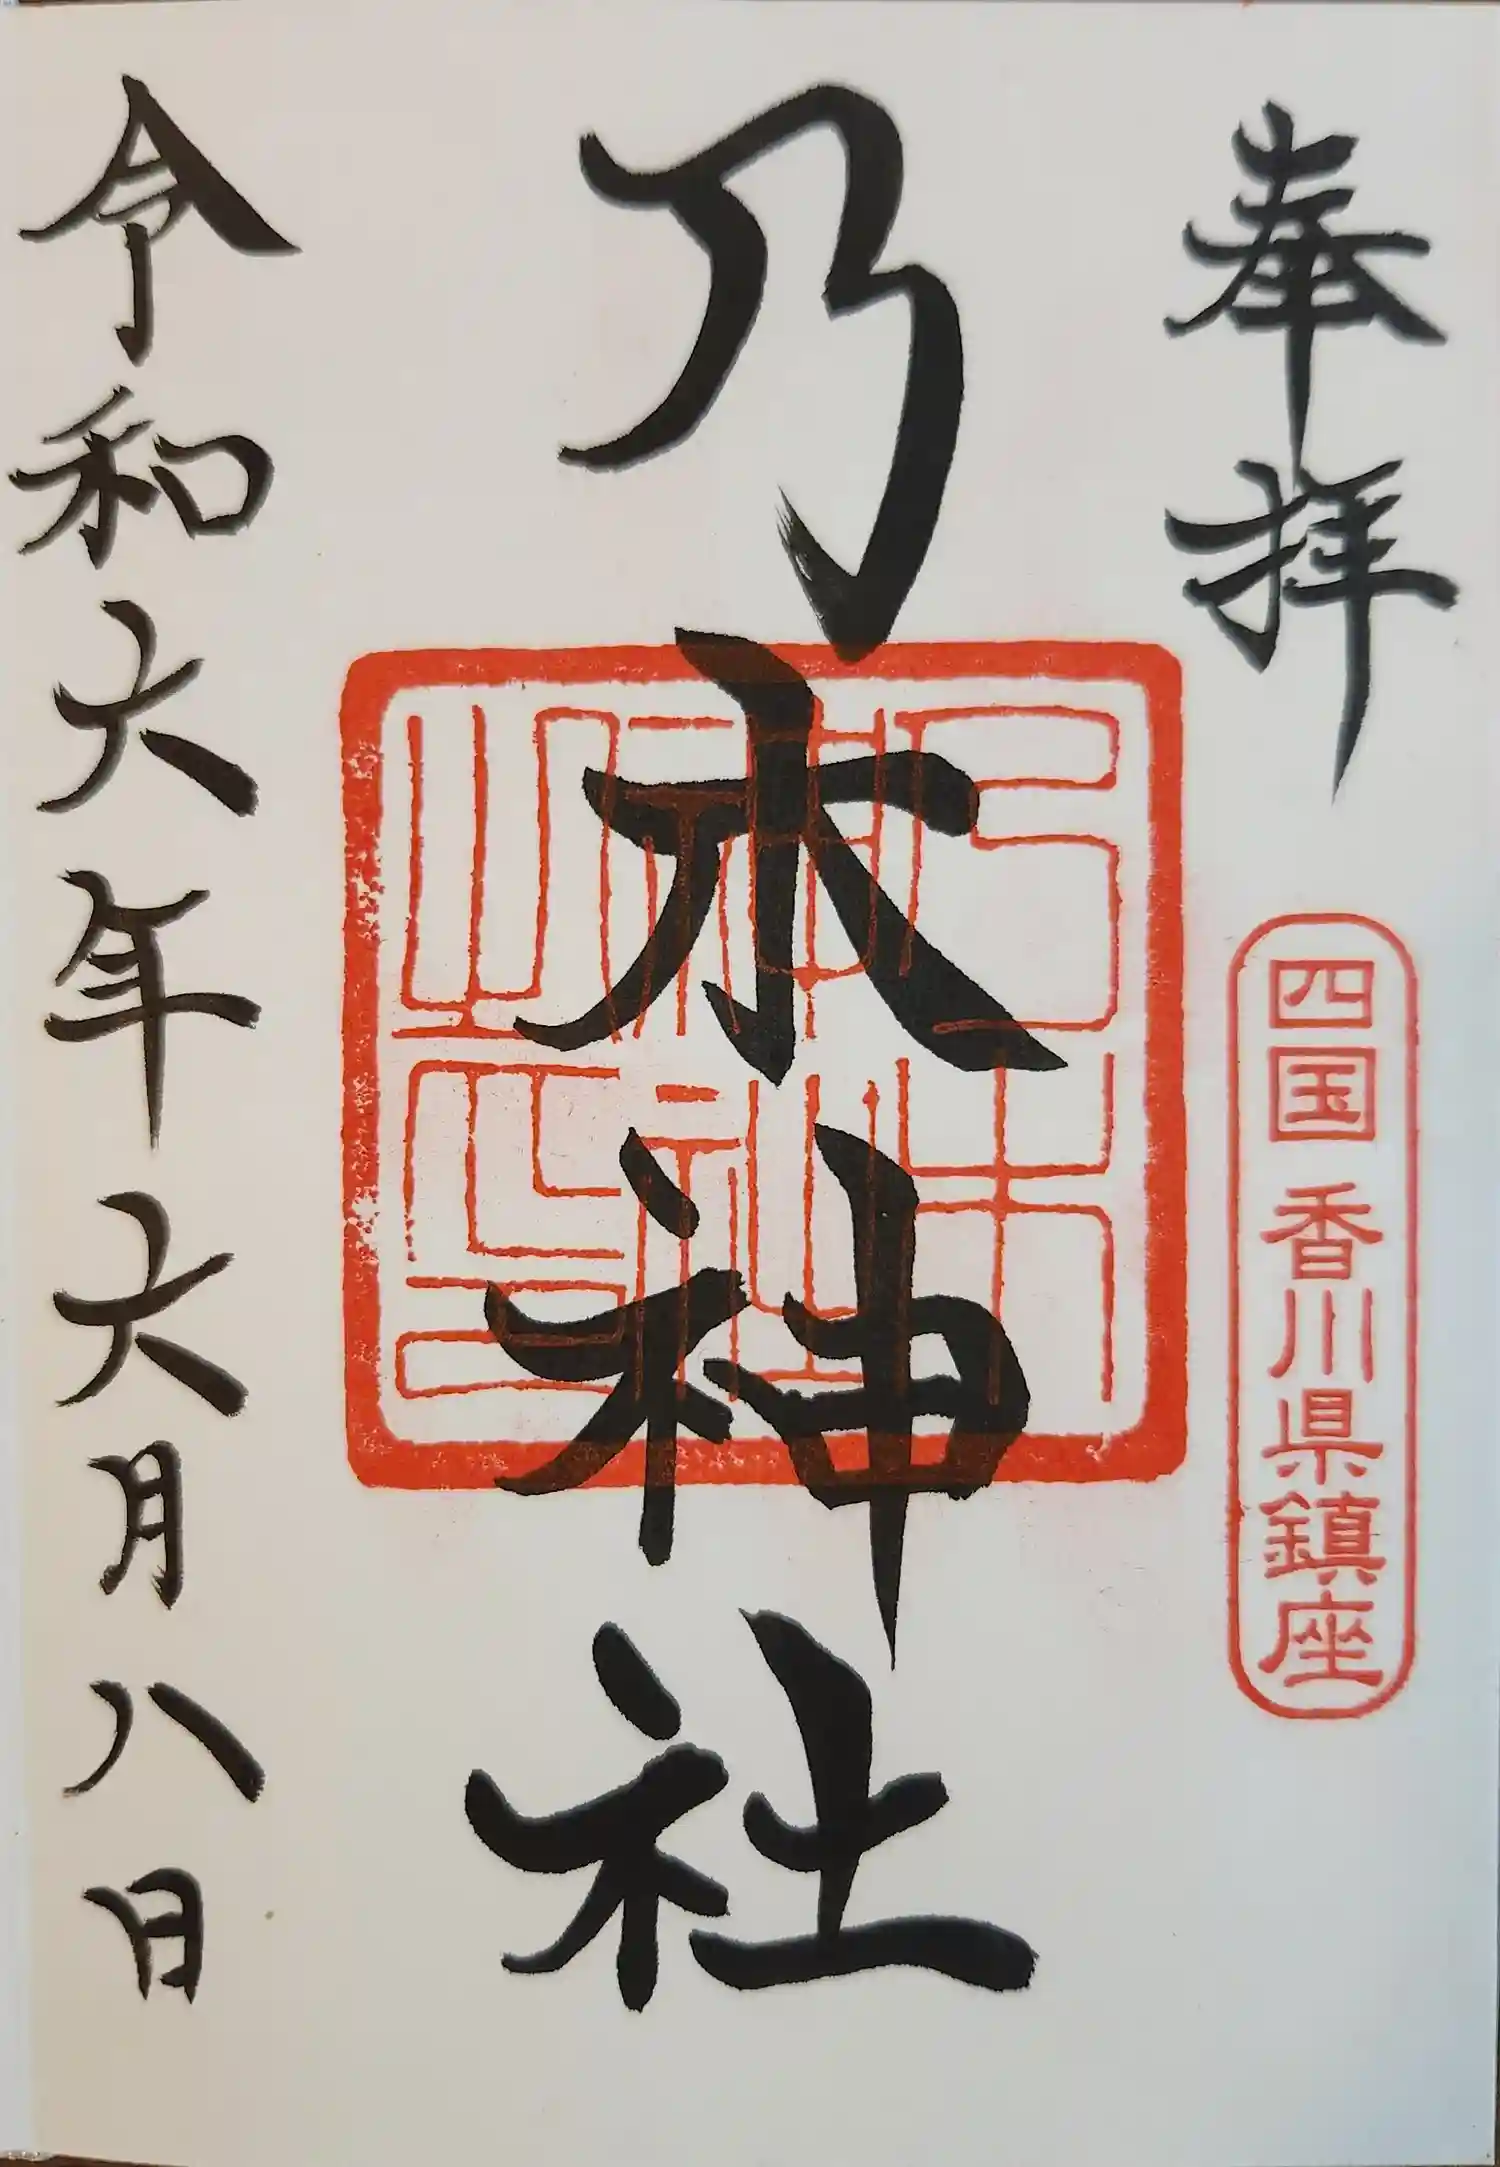 奉拝
四国 香川県鎮座
乃木神社
乃木神社之印
令和六年六月八日